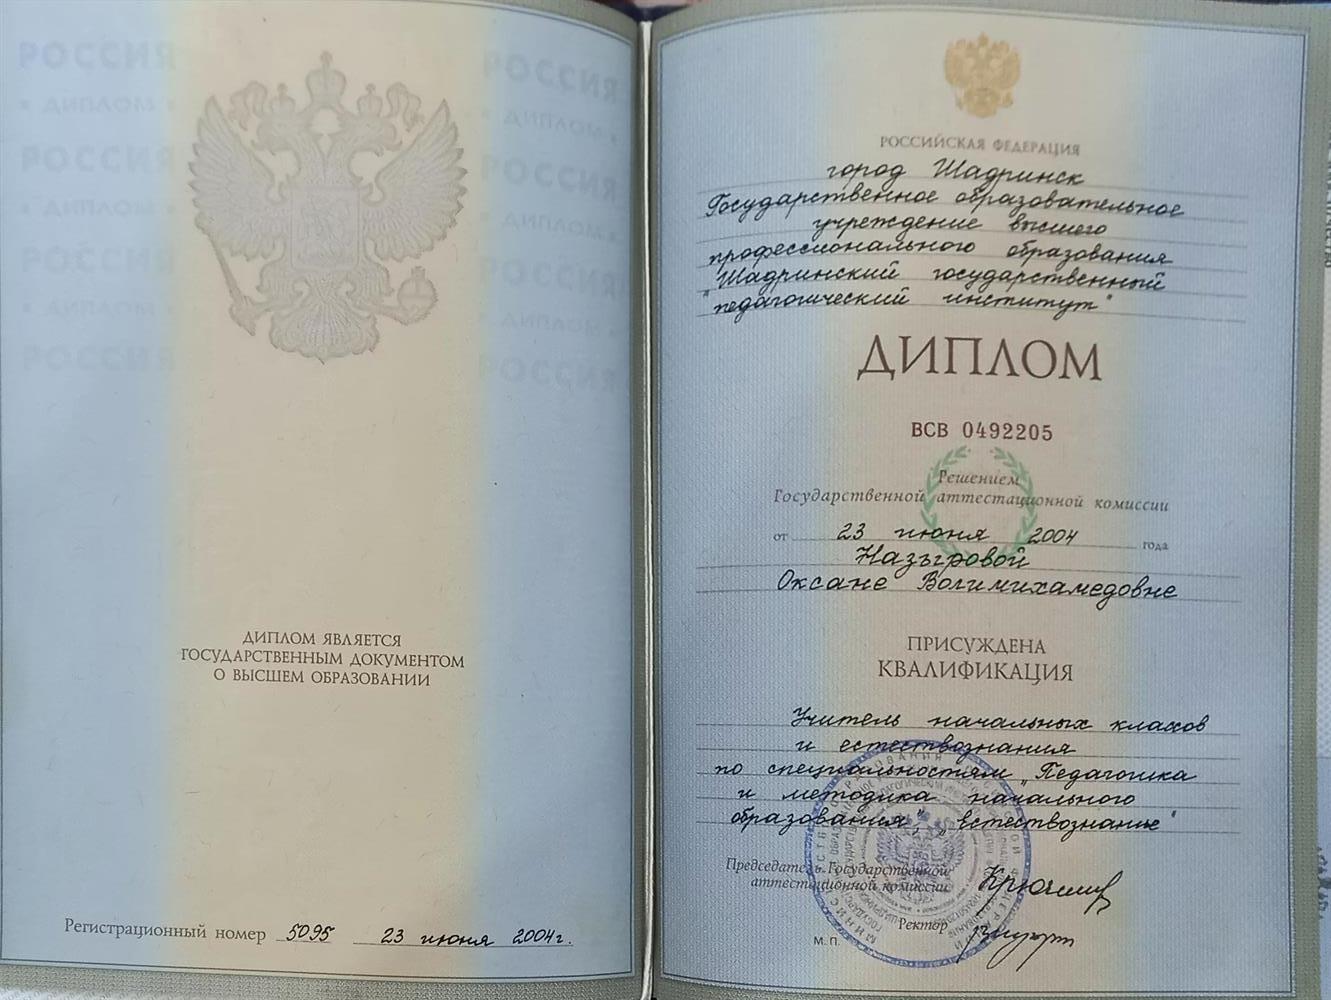 РОССИЯ РОССИЯ
• ДИПЛОМ • • ДИПЛОМ •
РОССИЯ РОССИЯ
• ДИПЛОМ • • ДИПЛОМ •
РОССИЯ РОССИЯ
• ДИПЛОМ • • ДИПЛОМ •
РОССИЯ РОССИЯ
ДИПЛОМ ЯВЛЯЕТСЯ
ГОСУДАРСТВЕННЫМ ДОКУМЕНТОМ
О ВЫСШЕМ ОБРАЗОВАНИИ
Регистрационный номер 5095 23 июня 2004г.
РОССИЙСКАЯ ФЕДЕРАЦИЯ
город Шадринск
Государственное образовательное
учреждение высшего
профессионального образования
"Шадринский государственный
педагогический институт"
ДИПЛОМ
ВСВ 0492205
Решением
Государственной аттестационной комиссии
от 23 июня 2004 года
Назыровой
Оксане Волимихамедовне
ПРИСУЖДЕНА
КВАЛИФИКАЦИЯ
Учитель начальных классов
и естествознания
по специальностям „Педагогика
и методика начального
образования", „Естествознание"
Председатель Государственной
аттестационной комиссии
Ректор
М. П.